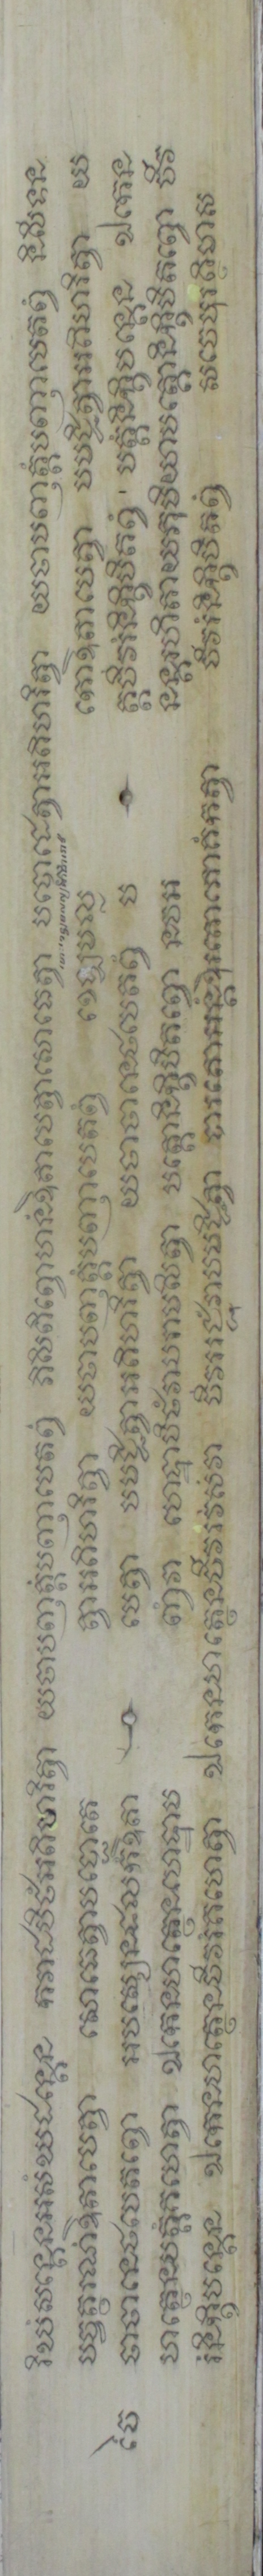 វិឃំសន្តេនអសំឃដន្តេន កវាដបិដ្ឋំអតិហរិត្វា យថាបញ្ញត្តំបញ្ញាបេតព្វំ ភិសិពិព្វោហនំឱតាបេត្វាសោធេត្វា បប្ផោដេត្វាអតិហរិត្វា យថាបញ្ញត្តំបញ្ញាបេតព្វំ និសីទន
បច្ចត្ថរណំឱតាបេត្វា សោធេត្វាបប្ផោដេ ត្វាអតិហរិត្វា យថាបញ្ញត្តំបញ្ញាបេតព្វំ ខេឡមល្ល កោឱតាបេត្វា បមជ្ជិត្វាអតិហរិត្វា យ
ថាឋានេឋបេតព្វោ អបស្សេនផលកំឱតា បេត្វា បមជ្ជិត្វាអតិហរិត្វា យថាឋានេឋបេតព្វំ ប ត្តចីវរំនិក្ខិបិតព្វំ បត្តំនិក្ខិបន្តេន ឯកេន
ហត្ថេនបត្តំគហេត្វា ឯកេនហត្ថេនហេដ្ឋាម ញ្ចំវា ហេដ្ឋាបិឋំវាបរាមសិត្វា បត្តោនិក្ខិបិតព្វោ នចអ នន្តរហិតាយភុមិយាបត្តោនិក្ខិបិតព្វោ ចីវ
រំនិក្ខិបន្តេន ឯកេនហត្ថេនចីវរំគហេត្វា ឯកេនហត្ថេនចីវរវំសំវា ចីវររជ្ជុំវាបមជ្ជិត្វា បារតោអន្តំឱរតោភោគំកត្វា ចីវរំនិក្ខិបិតព្វំ សចេបុរត្ថិមាស